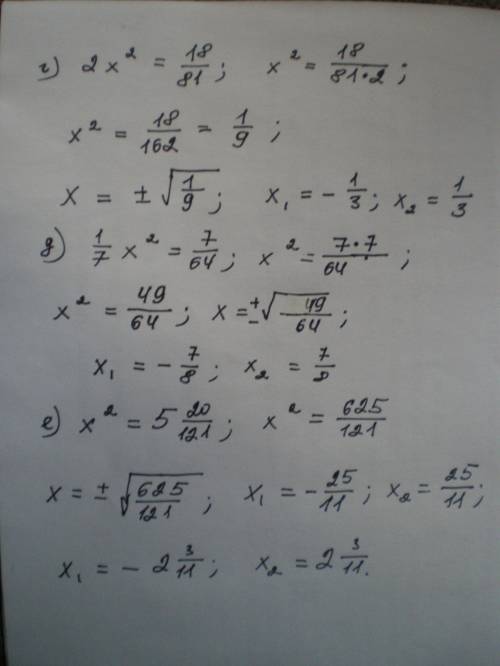 г) 2x² = 18/81; x² = 18/(81·2);
x² = 18/162 = 1/9;
x = ±√(1/9); x₁ = -1/3; x₂ = 1/3
д) 1/7 x² = 7/64; x² = 7·7/64;
x² = 49/64; x = ±√(49/64);
x₁ = -7/8; x₂ = 7/8
е) x² = 5 20/121; x² = 625/121
x = ±√(625/121); x₁ = -25/11; x₂ = 25/11;
x₁ = -2 3/11; x₂ = 2 3/11.